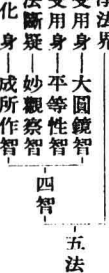 法界
受用身—大圓鏡智
受用身—平等性智
法斷疑—妙觀察智
化身—成所作智
四智
五法